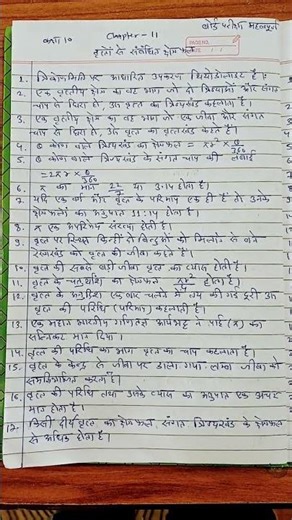 कक्षा 10 Chapter - 11 बोर्ड परीक्षा महत्वपूर्ण
वृत्तों से संबंधित क्षेत्रफल
1. त्रिकोणमिति पर आधारित उपकरण थियोडोलाइट है।
2. एक वृत्तीय क्षेत्र का वह भाग जो दो त्रिज्याओं और संगत
चाप से घिरा हो, उस वृत्त का त्रिज्यखंड कहलाता है।
3. एक वृत्तीय क्षेत्र का वह भाग जो एक जीवा और संगत
चाप से घिरा हो, उस वृत्त का वृत्तखंड कहते है।
4. θ कोण वाले त्रिज्यखंड का क्षेत्रफल = πr² × θ/360
5. θ कोण वाले त्रिज्यखंड के संगत चाप की लंबाई
= 2πr × θ/360
6. π का मान 22/7 या 3.14 होता है।
7. यदि एक वर्ग और वृत्त के परिमाप एक ही हैं तो उनके
क्षेत्रफलों का अनुपात 11:14 होता है।
8. π एक अपरिमेय संख्या होती है।
9. वृत्त पर स्थित किन्हीं दो बिन्दुओं को मिलाने से बने
रेखाखंड को वृत्त की जीवा कहते हैं।
10. वृत्त की सबसे बड़ी जीवा वृत्त का व्यास होती है।
11. वृत्त के चतुर्थांश का क्षेत्रफल πr²/4 होता है।
12. वृत्त के अनुदिश एक बार चलने में तय की गई दूरी उस
वृत्त की परिधि (परिमाप) कहलाती है।
13. एक महान भारतीय गणितज्ञ आर्यभट्ट ने पाई (π) का
सन्निकट मान दिया।
14. वृत्त की परिधि का भाग वृत्त का चाप कहलाता है।
15. वृत्त के केन्द्र से जीवा पर डाला गया लम्ब जीवा को
समद्विभाजित करता है।
16. वृत्त की परिधि तथा उसके व्यास का अनुपात एक अचर
मान होता है।
17. किसी दीर्घ वृत्त का क्षेत्रफल, संगत त्रिज्यखंड के क्षेत्रफल
से अधिक होता है।